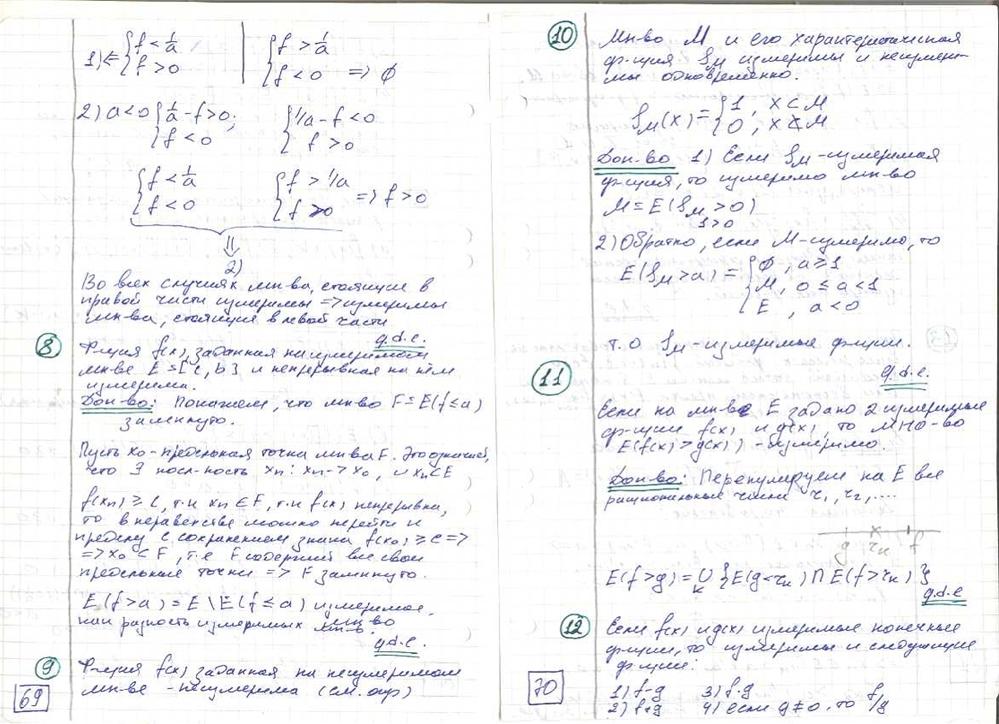 1) <= { f < 1/a | { f > 1/a
{ f > 0 | { f < 0 => ∅
2) a<0 { 1/a - f > 0; { 1/a - f < 0
{ f < 0 { f > 0
{ f < 1/a { f > 1/a => f > 0
{ f < 0 { f > 0
⇓
2)
Во всех случаях мн-ва, стоящие в
правой части измеримы => измеримы
мн-ва, стоящие в левой части
q.d.e.
8 Ф-ция f(x), заданная на измеримом
мн-ве E = [c, b] и непрерывная на нём
измерима.
Док-во: Покажем, что мн-во F = E(f ≤ a)
замкнуто.
Пусть x₀ - предельная точка мн-ва F. Это означает,
что ∃ посл-ность xₙ: xₙ -> x₀, и xₙ ⊂ E
f(xₙ) ≥ c, т.к xₙ ∈ F, т.к f(x) непрерывна,
то в неравенстве можно перейти к
пределу с сохранением знака f(x₀) ≥ c =>
=> x₀ ⊂ F, т.е F содержит все свои
предельные точки => F замкнуто.
E(f > a) = E \ E(f ≤ a) измеримое
как разность измеримых мн-в.
q.d.e.
9 Ф-ция f(x) заданная на неизмеримом
мн-ве - неизмерима (см. опр)
69
10 Мн-во M и его характеристическая
ф-ция S_M измеримы и неизмери-
мы одновременно.
S_M(x) = { 1, x ⊂ M
{ 0, x ⊄ M
Док-во 1) Если S_M - измеримая
ф-ция, то измеримо мн-во
M = E(S_M > 0)
1 > 0
2) Обратно, если M - измеримо, то
E(S_M > a) = { ∅, a ≥ 1
{ M, 0 ≤ a < 1
{ E, a < 0
т.о S_M - измеримые ф-ции.
q.d.e.
11
Если на мн-ве E задано 2 измеримые
ф-ции f(x) и g(x), то мно-во
E(f(x) > g(x)) - измеримо.
Док-во: Перенумеруем на E все
рациональные числа r₁, r₂, ....
g rₖ f
E(f > g) = ∪ₖ { E(g < rₖ) ∩ E(f > rₖ) }
q.d.e
12 Если f(x) и g(x) измеримые конечные
ф-ции, то измеримы и следующие
ф-ции:
1) f-g 3) f·g
2) f+g 4) если g ≠ 0, то f/g
70